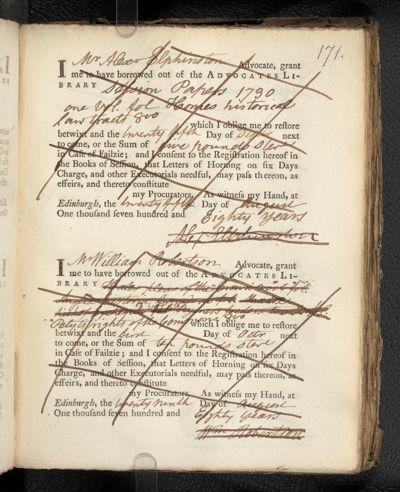 171.
I Mr Alexr Elphinston Advocate, grant
me to have borrowed out of the ADVOCATES LI-
BRARY Session Papers 1790
one Vol. fol Homes historical
Law tracts 8vo
which I oblige me to restore
betwixt and the twenty fifth Day of next
to come, or the Sum of five pounds Sterl
in Case of Failzie; and I consent to the Registration hereof in
the Books of Session, that Letters of Horning on six Days
Charge, and other Executorials needful, may pass thereon, as
effeirs, and thereto constitute
my Procurators. As witness my Hand, at
Edinburgh, the twenty fifth Day of August
One thousand seven hundred and Eighty Years
Alexr Elphinston
I Mr William Robertson Advocate, grant
me to have borrowed out of the ADVOCATES LI-
BRARY
which I oblige me to restore
betwixt and the Day of Octr next
to come, or the Sum of ten pounds Sterl
in Case of Failzie; and I consent to the Registration hereof in
the Books of Session, that Letters of Horning on six Days
Charge, and other Executorials needful, may pass thereon, as
effeirs, and thereto constitute
my Procurators. As witness my Hand, at
Edinburgh, the twenty ninth Day of August
One thousand seven hundred and Eighty Years
Wm Robertson